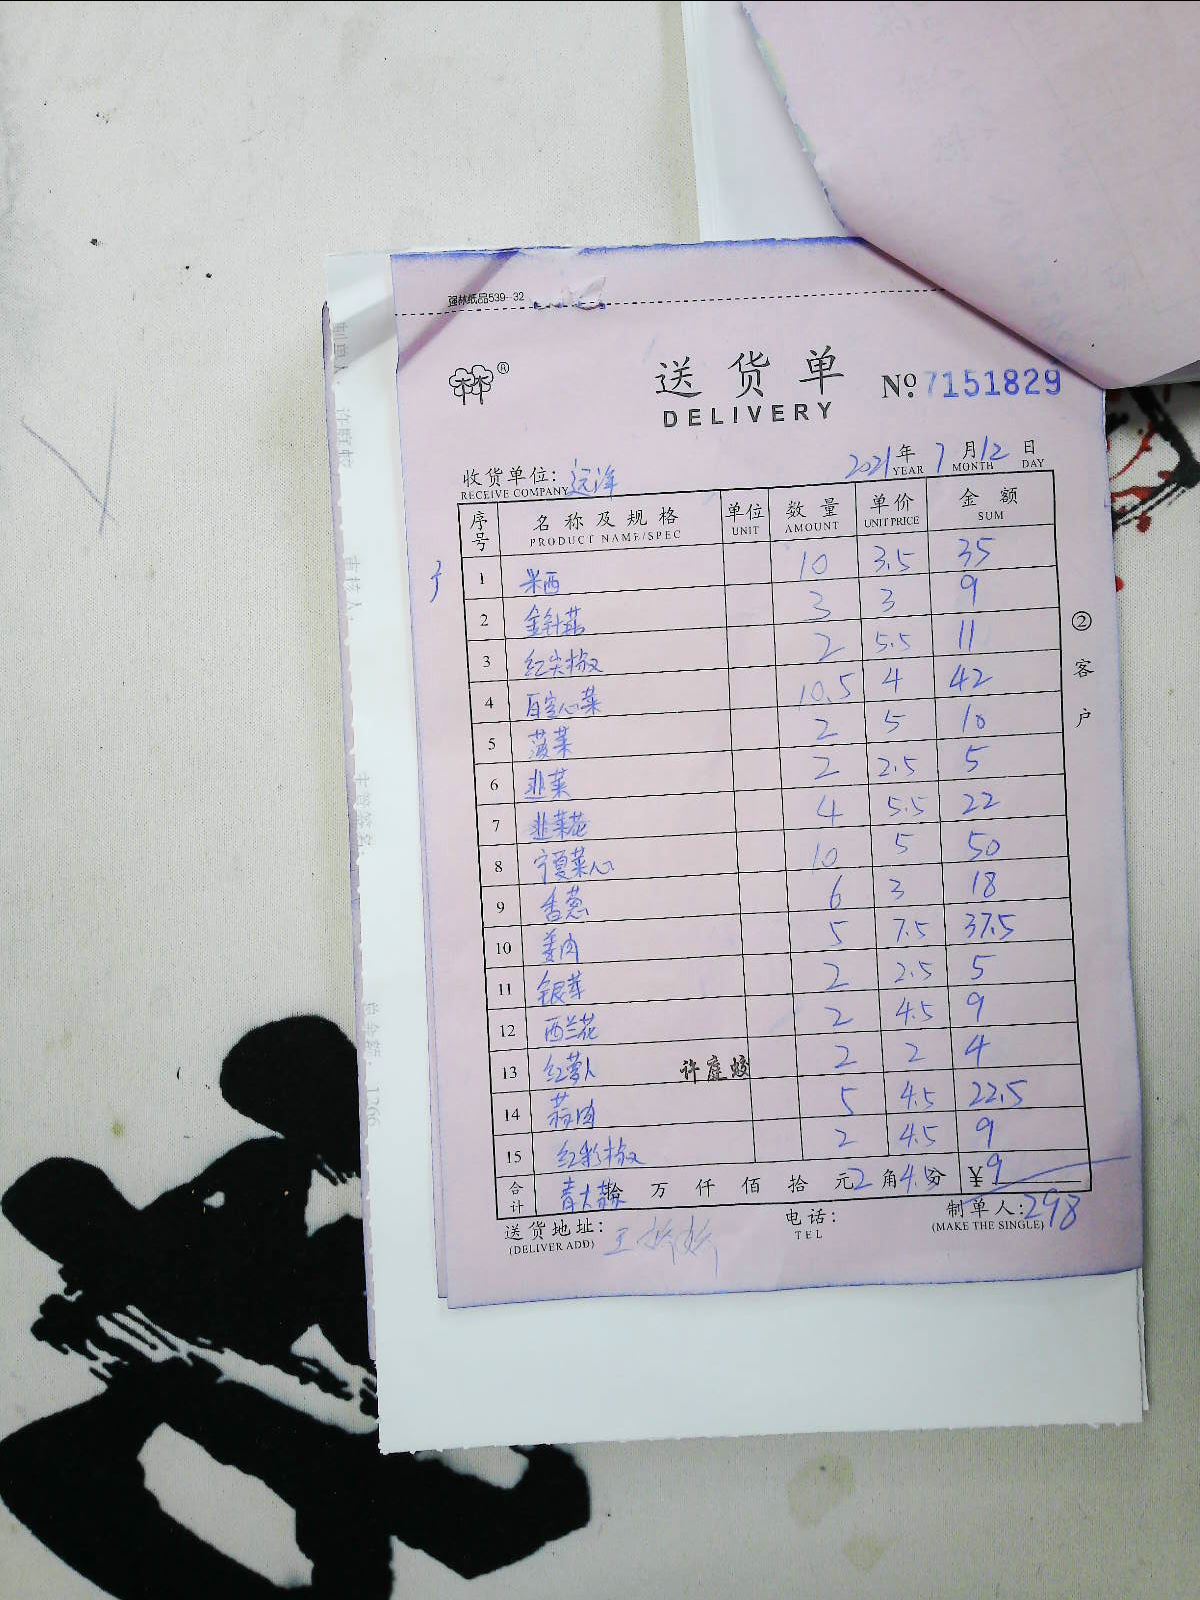 强林纸品539-32
®
送货单
DELIVERY
№ 7151829
收货单位: 远洋 2021年 7月12日
RECEIVE COMPANY YEAR MONTH DAY
序号 名称及规格 单位 数量 单价 金额
PRODUCT NAME/SPEC UNIT AMOUNT UNIT PRICE SUM
1 果西 10 3.5 35
2 金针菇 3 3 9
3 红尖椒 2 5.5 11
4 白空心菜 10.5 4 42
5 菠菜 2 5 10
6 韭菜 2 2.5 5
7 韭菜花 4 5.5 22
8 宁夏菜心 10 5 50
9 香葱 6 3 18
10 姜肉 5 7.5 37.5
11 银芽 2 2.5 5
12 西兰花 2 4.5 9
13 红萝卜 许庭蛟 2 2 4
14 蒜肉 5 4.5 22.5
15 红彩椒 2 4.5 9
合计 青大蒜 拾 万 仟 佰 拾 元 2 角 4.5 分 ¥ 9
送货地址: 电话: 制单人: 298
(DELIVER ADD) TEL (MAKE THE SINGLE)
②客户